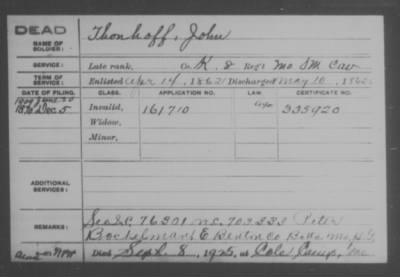 DEAD
NAME OF SOLDIER: Thonhoff, John
SERVICE: Late rank, Co. K, 8 Reg't Mo S M Cav
TERM OF SERVICE: Enlisted Apr 14, 1862 Discharged May 16, 1862
DATE OF FILING. CLASS. APPLICATION NO. LAW. CERTIFICATE NO.
Dec 5 Invalid, 161710 335920
Widow,
Minor,
ADDITIONAL SERVICES:
REMARKS: 76301 703333 Peter
E Benton Co Mo
Died Sept. 8, 1925, at Cole Camp, Mo